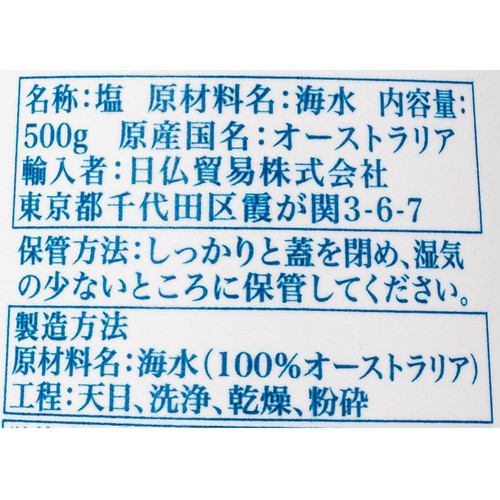 名称：塩 原材料名：海水 内容量：
500g 原産国名：オーストラリア
輸入者：日仏貿易株式会社
東京都千代田区霞が関3-6-7
保管方法：しっかりと蓋を閉め、湿気
の少ないところに保管してください。
製造方法
原材料名：海水（100%オーストラリア）
工程：天日、洗浄、乾燥、粉砕